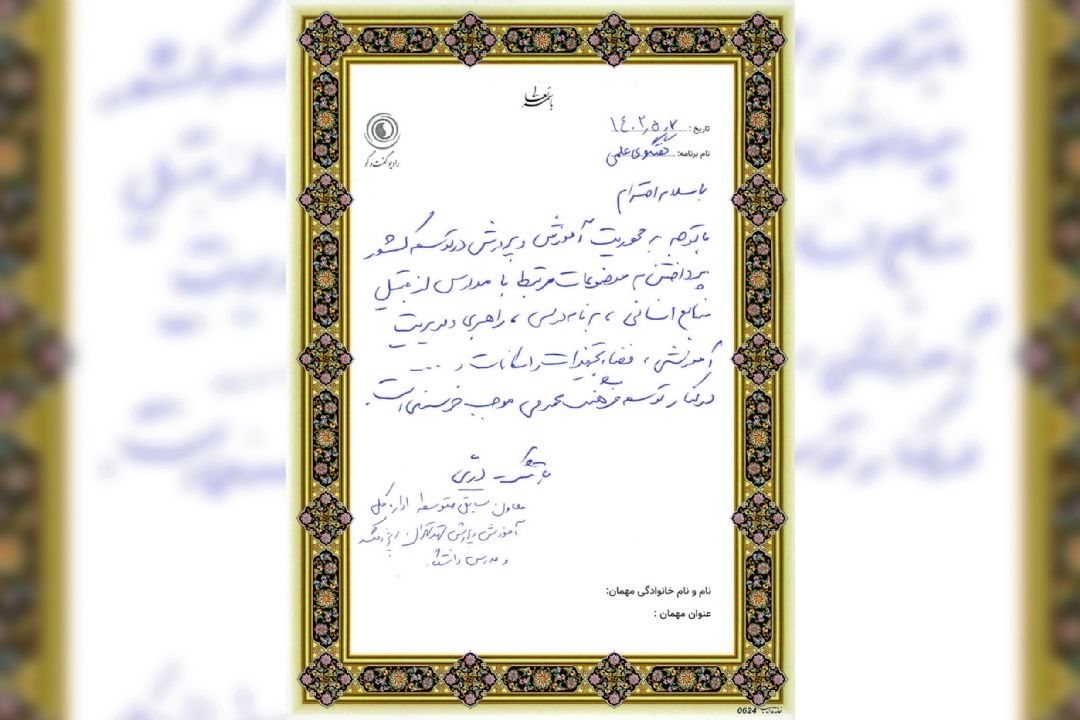 باسمه تعالی
رادیو گفت و گو
تاریخ: ۱۴۰۲٫۵٫۷
نام برنامه: گفتگوی علمی
با سلام و احترام
با توجه به محوریت آموزش و پرورش در توسعه کشور
پرداختن به موضوعات مرتبط با مدارس از قبیل
منابع انسانی ، برنامه درسی ، راهبری و مدیریت
آموزشی ، فضا، تجهیزات و امکانات و ....
در کنار توسعه فرهنگ عمومی موجب خرسندی است.
با تشکر
معاون سابق متوسطه اداره کل
آموزش و پرورش شهر تهران
و مدرس دانشگاه
نام و نام خانوادگی مهمان:
عنوان مهمان :
0624